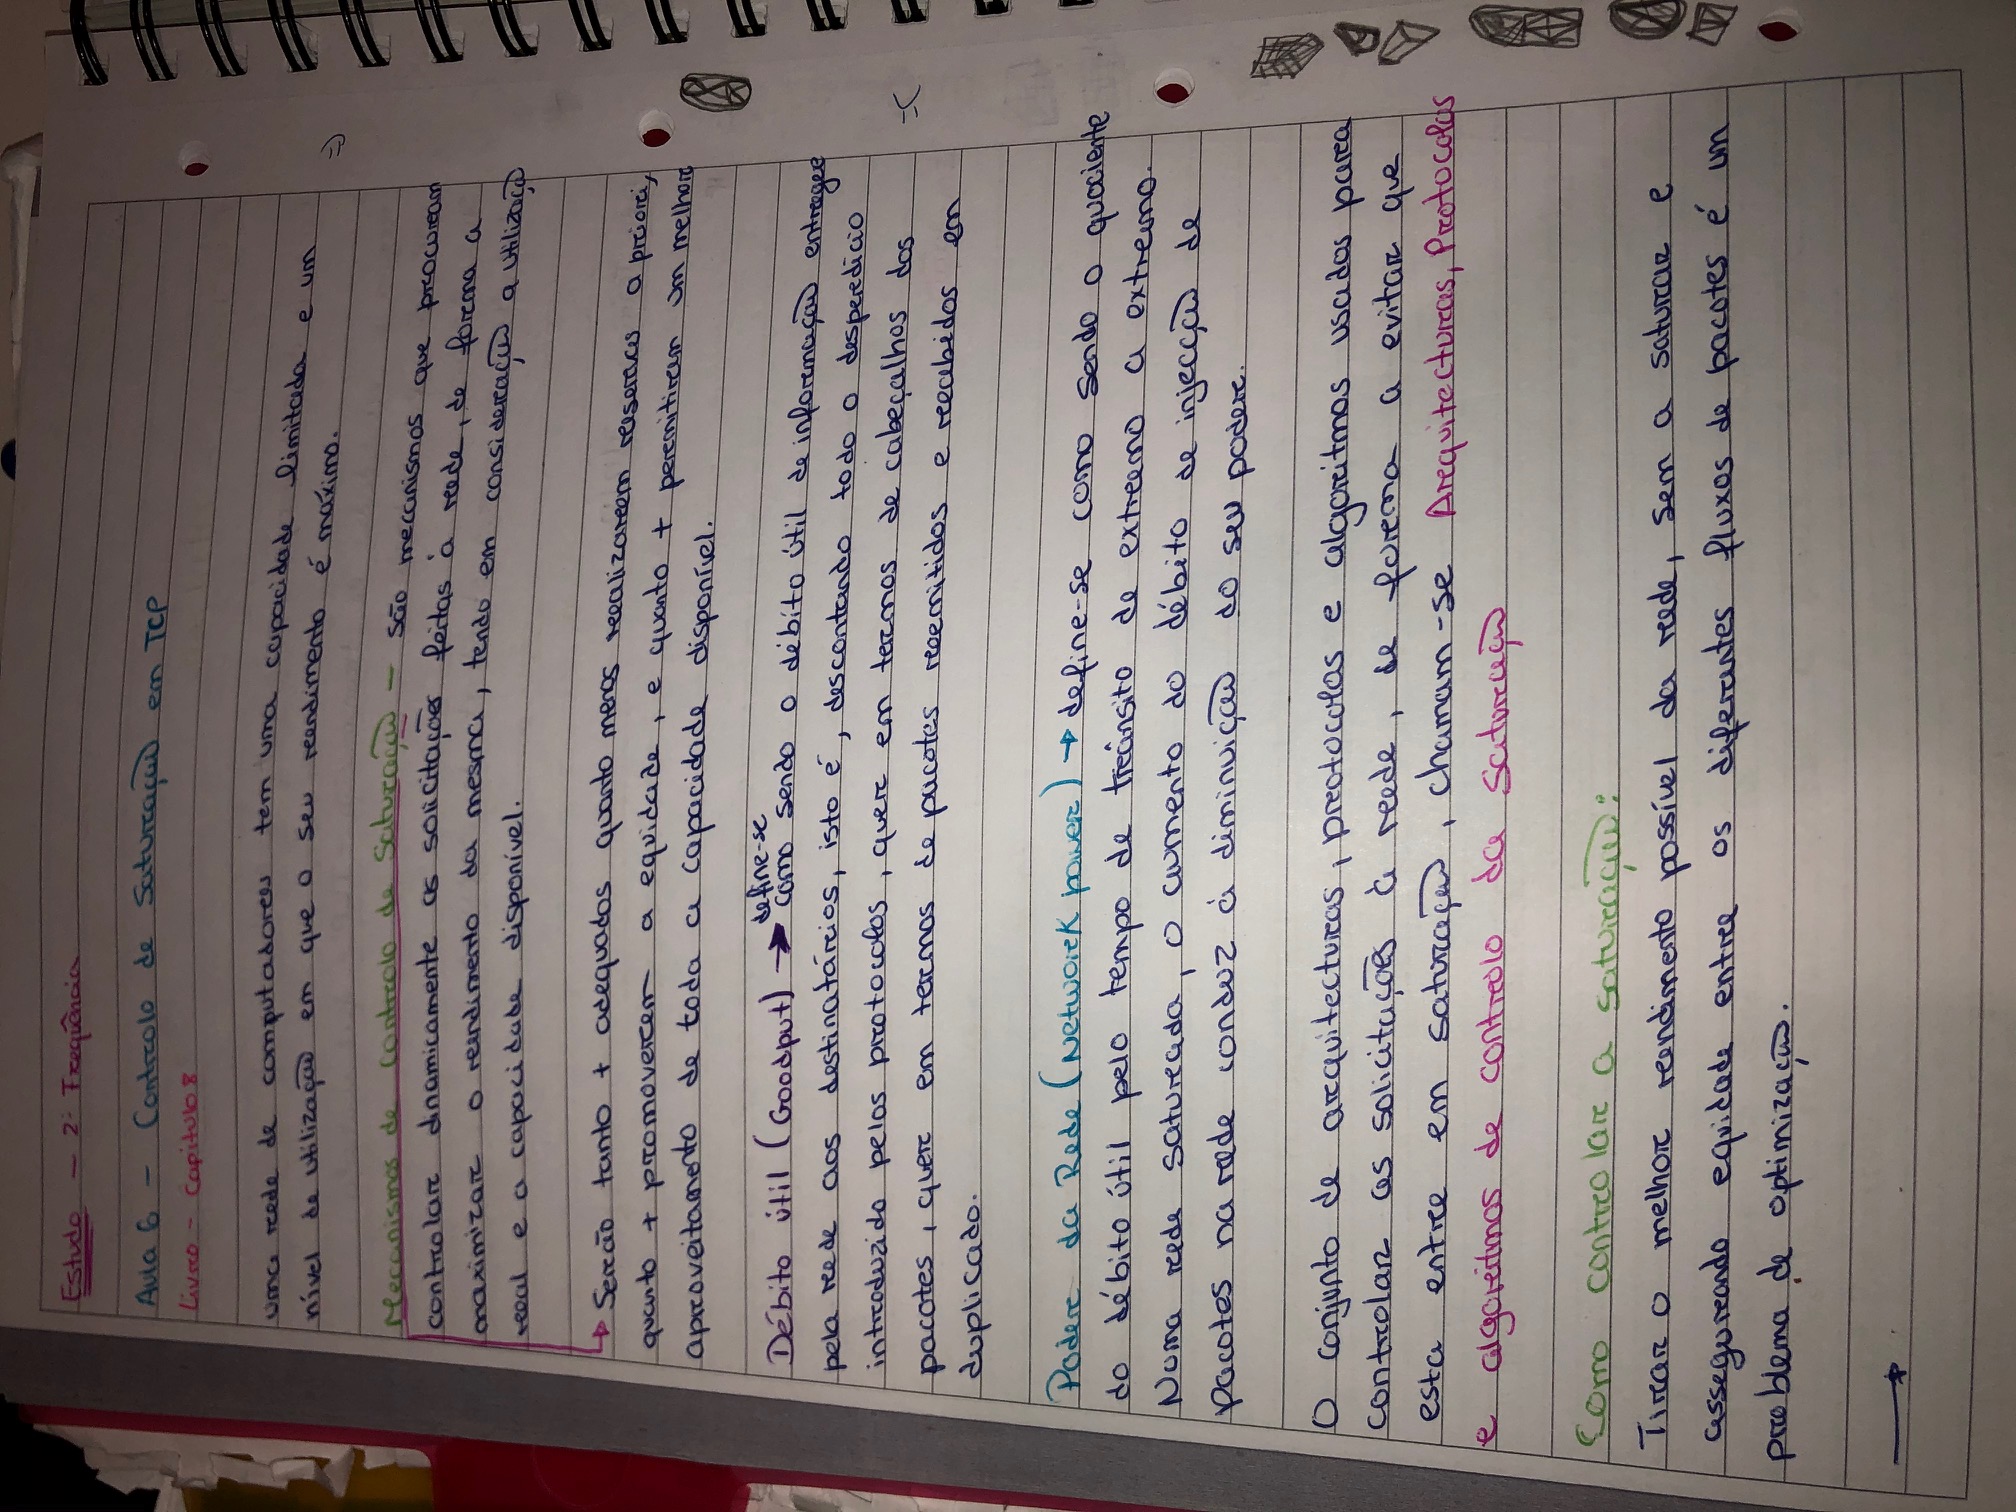 Estudo — 2ª Frequência
Aula 6 — Controlo de Saturação em TCP
Livro - Capitulo 8
uma rede de computadores tem uma capacidade limitada e um
nível de utilização em que o seu rendimento é máximo.
Mecanismos de controlo de saturação — são mecanismos que procuram
controlar dinamicamente as solicitações feitas à rede, de forma a
maximizar o rendimento da mesma, tendo em consideração a utilização
real e a capacidade disponível.
↳ Serão tanto + adequados quanto menos realizarem reservas a priori,
quanto + promoverem a equidade, e quanto + permitirem um melhor
aproveitamento de toda a capacidade disponível.
define-se
Débito útil (Goodput) → como sendo o débito útil de informação entregue
pela rede aos destinatários, isto é, descontando todo o desperdicio
introduzido pelos protocolos, quer em termos de cabeçalhos dos
pacotes, quer em termos de pacotes reemitidos e recebidos em
duplicado.
Poder da Rede (Network power) → define-se como sendo o quociente
do débito útil pelo tempo de trânsito de extremo a extremo.
Numa rede saturada, o aumento do débito de injecção de
pacotes na rede conduz à diminuição do seu poder.
O conjunto de arquitecturas, protocolos e algoritmos usados para
controlar as solicitações à rede, de forma a evitar que
esta entre em saturação, chamam-se Arquitecturas, Protocolos
e algoritmos de controlo da saturação
Como controlar a saturação:
Tirar o melhor rendimento possível da rede, sem a saturar e
assegurando equidade entre os diferentes fluxos de pacotes é um
problema de optimização.
→
=)
=(